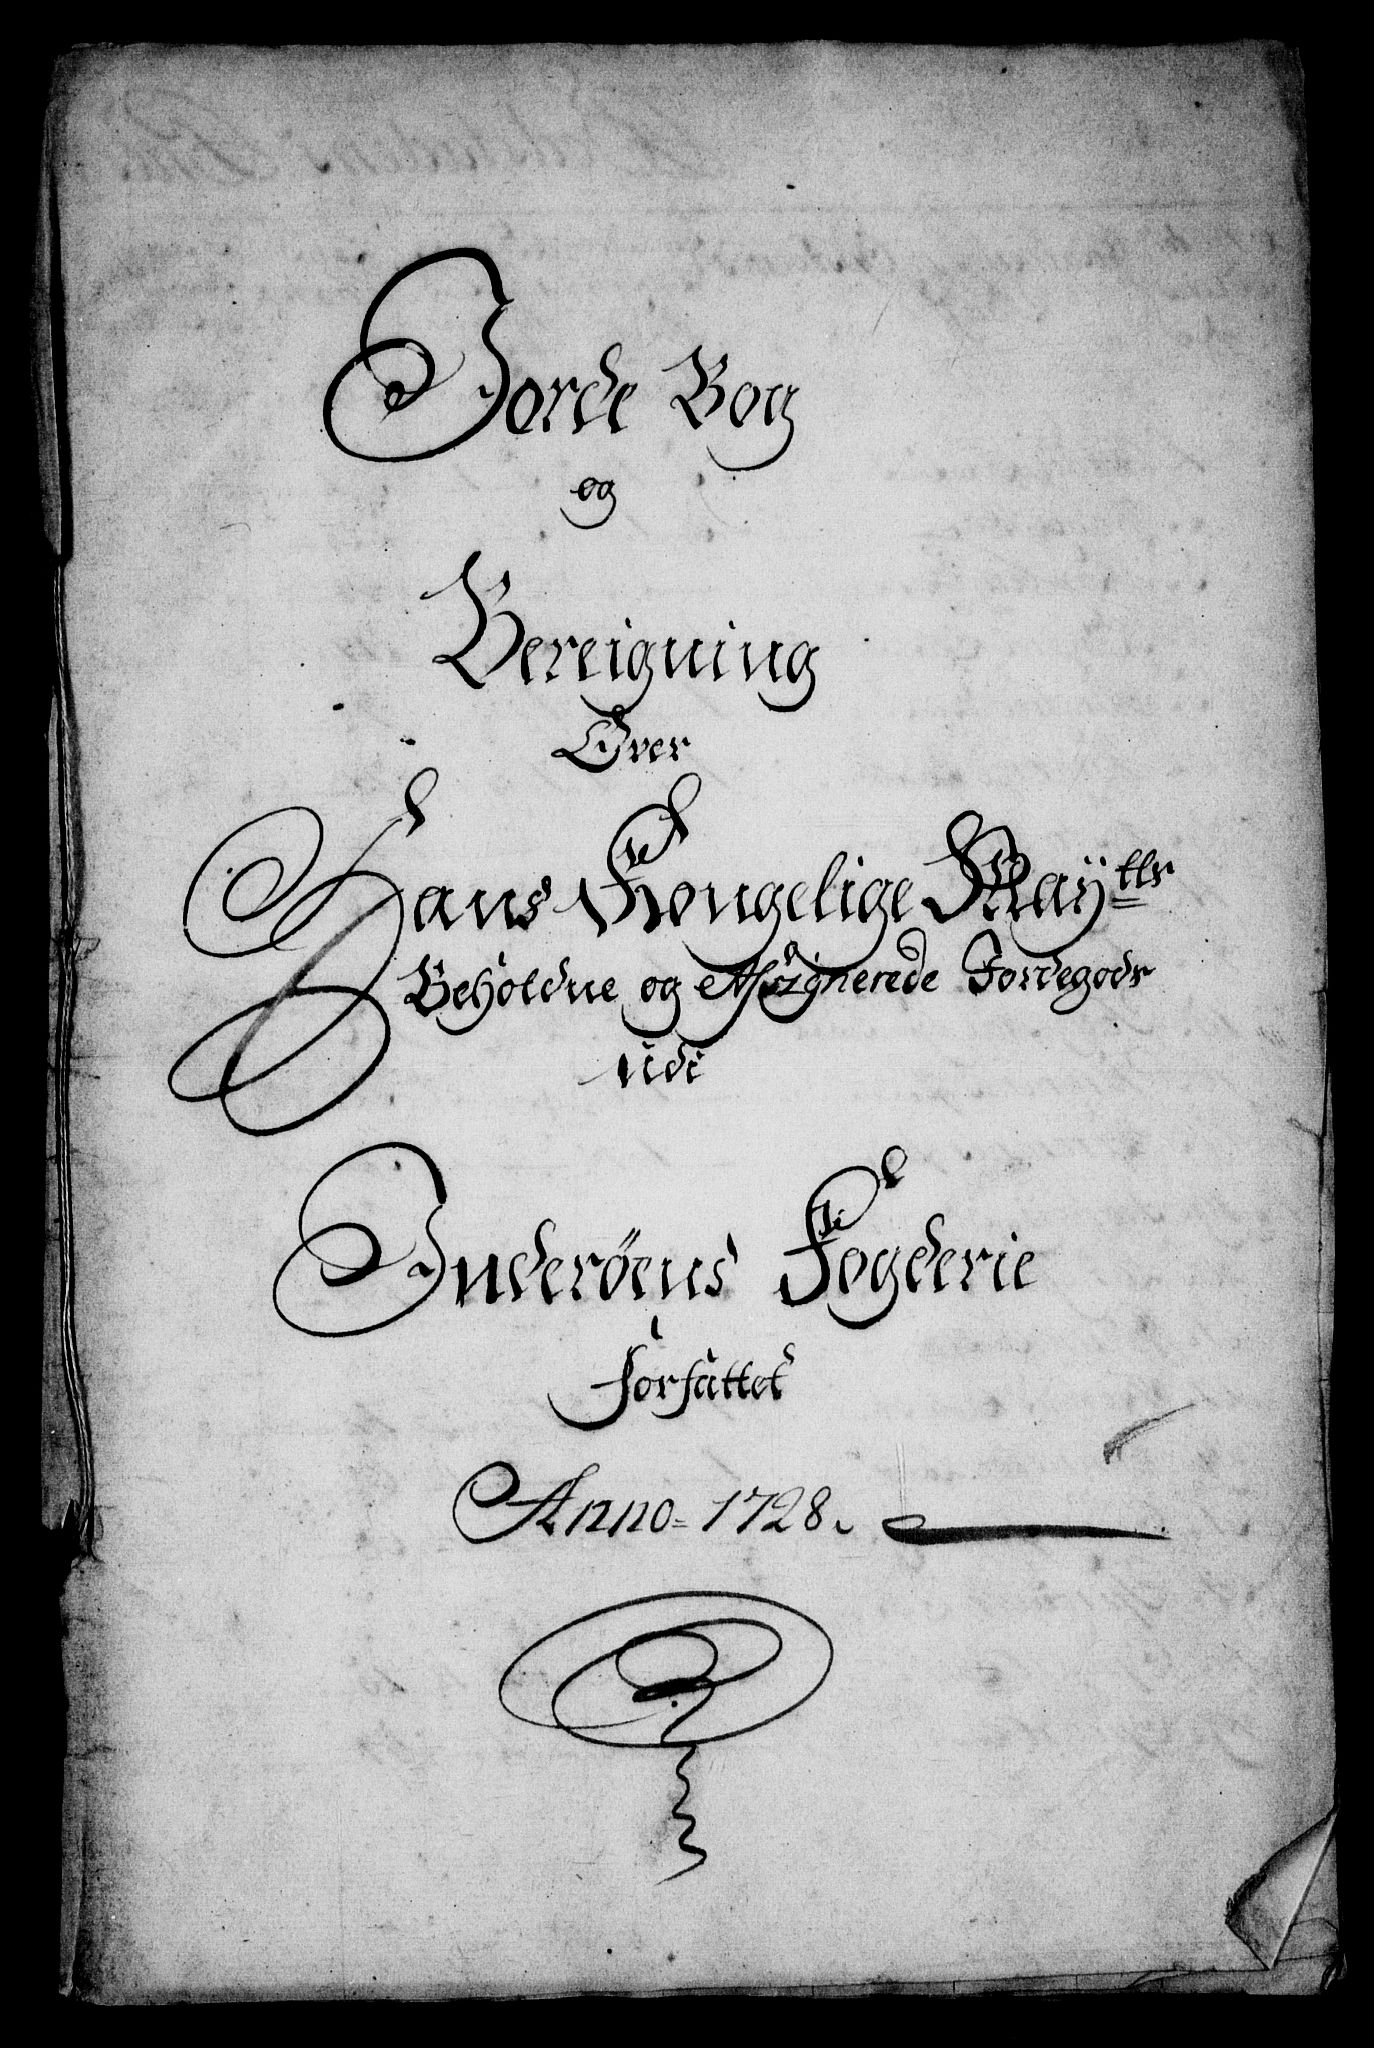 Jorde Bog
og
Bereigning
Over
Hans Kongelige Mayttr
Beholdne og Assignerede Jordegodr
udi
Inderøens Fogderie
forfattet
Anno 1728.